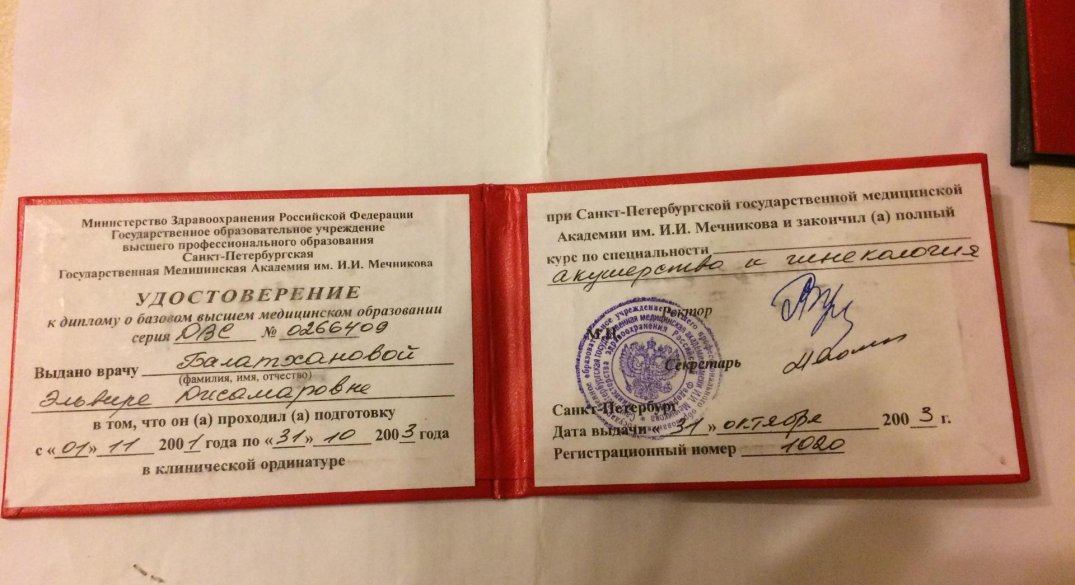 Министерство Здравоохранения Российской Федерации
Государственное образовательное учреждение
высшего профессионального образования
Санкт-Петербургская
Государственная Медицинская Академия им. И.И. Мечникова
УДОСТОВЕРЕНИЕ
к диплому о базовом высшем медицинском образовании
серия ДВС № 0266409
Выдано врачу Балатхановой
(фамилия, имя, отчество)
Эльвире
в том, что он (а) проходил (а) подготовку
с « 01 » 11 2001 года по « 31 » 10 2003 года
в клинической ординатуре
при Санкт-Петербургской государственной медицинской
Академии им. И.И. Мечникова и закончил (а) полный
курс по специальности
акушерство и гинекология
Ректор
М.П.
Секретарь
Санкт-Петербург
Дата выдачи « 31 » октября 2003 г.
Регистрационный номер 1020